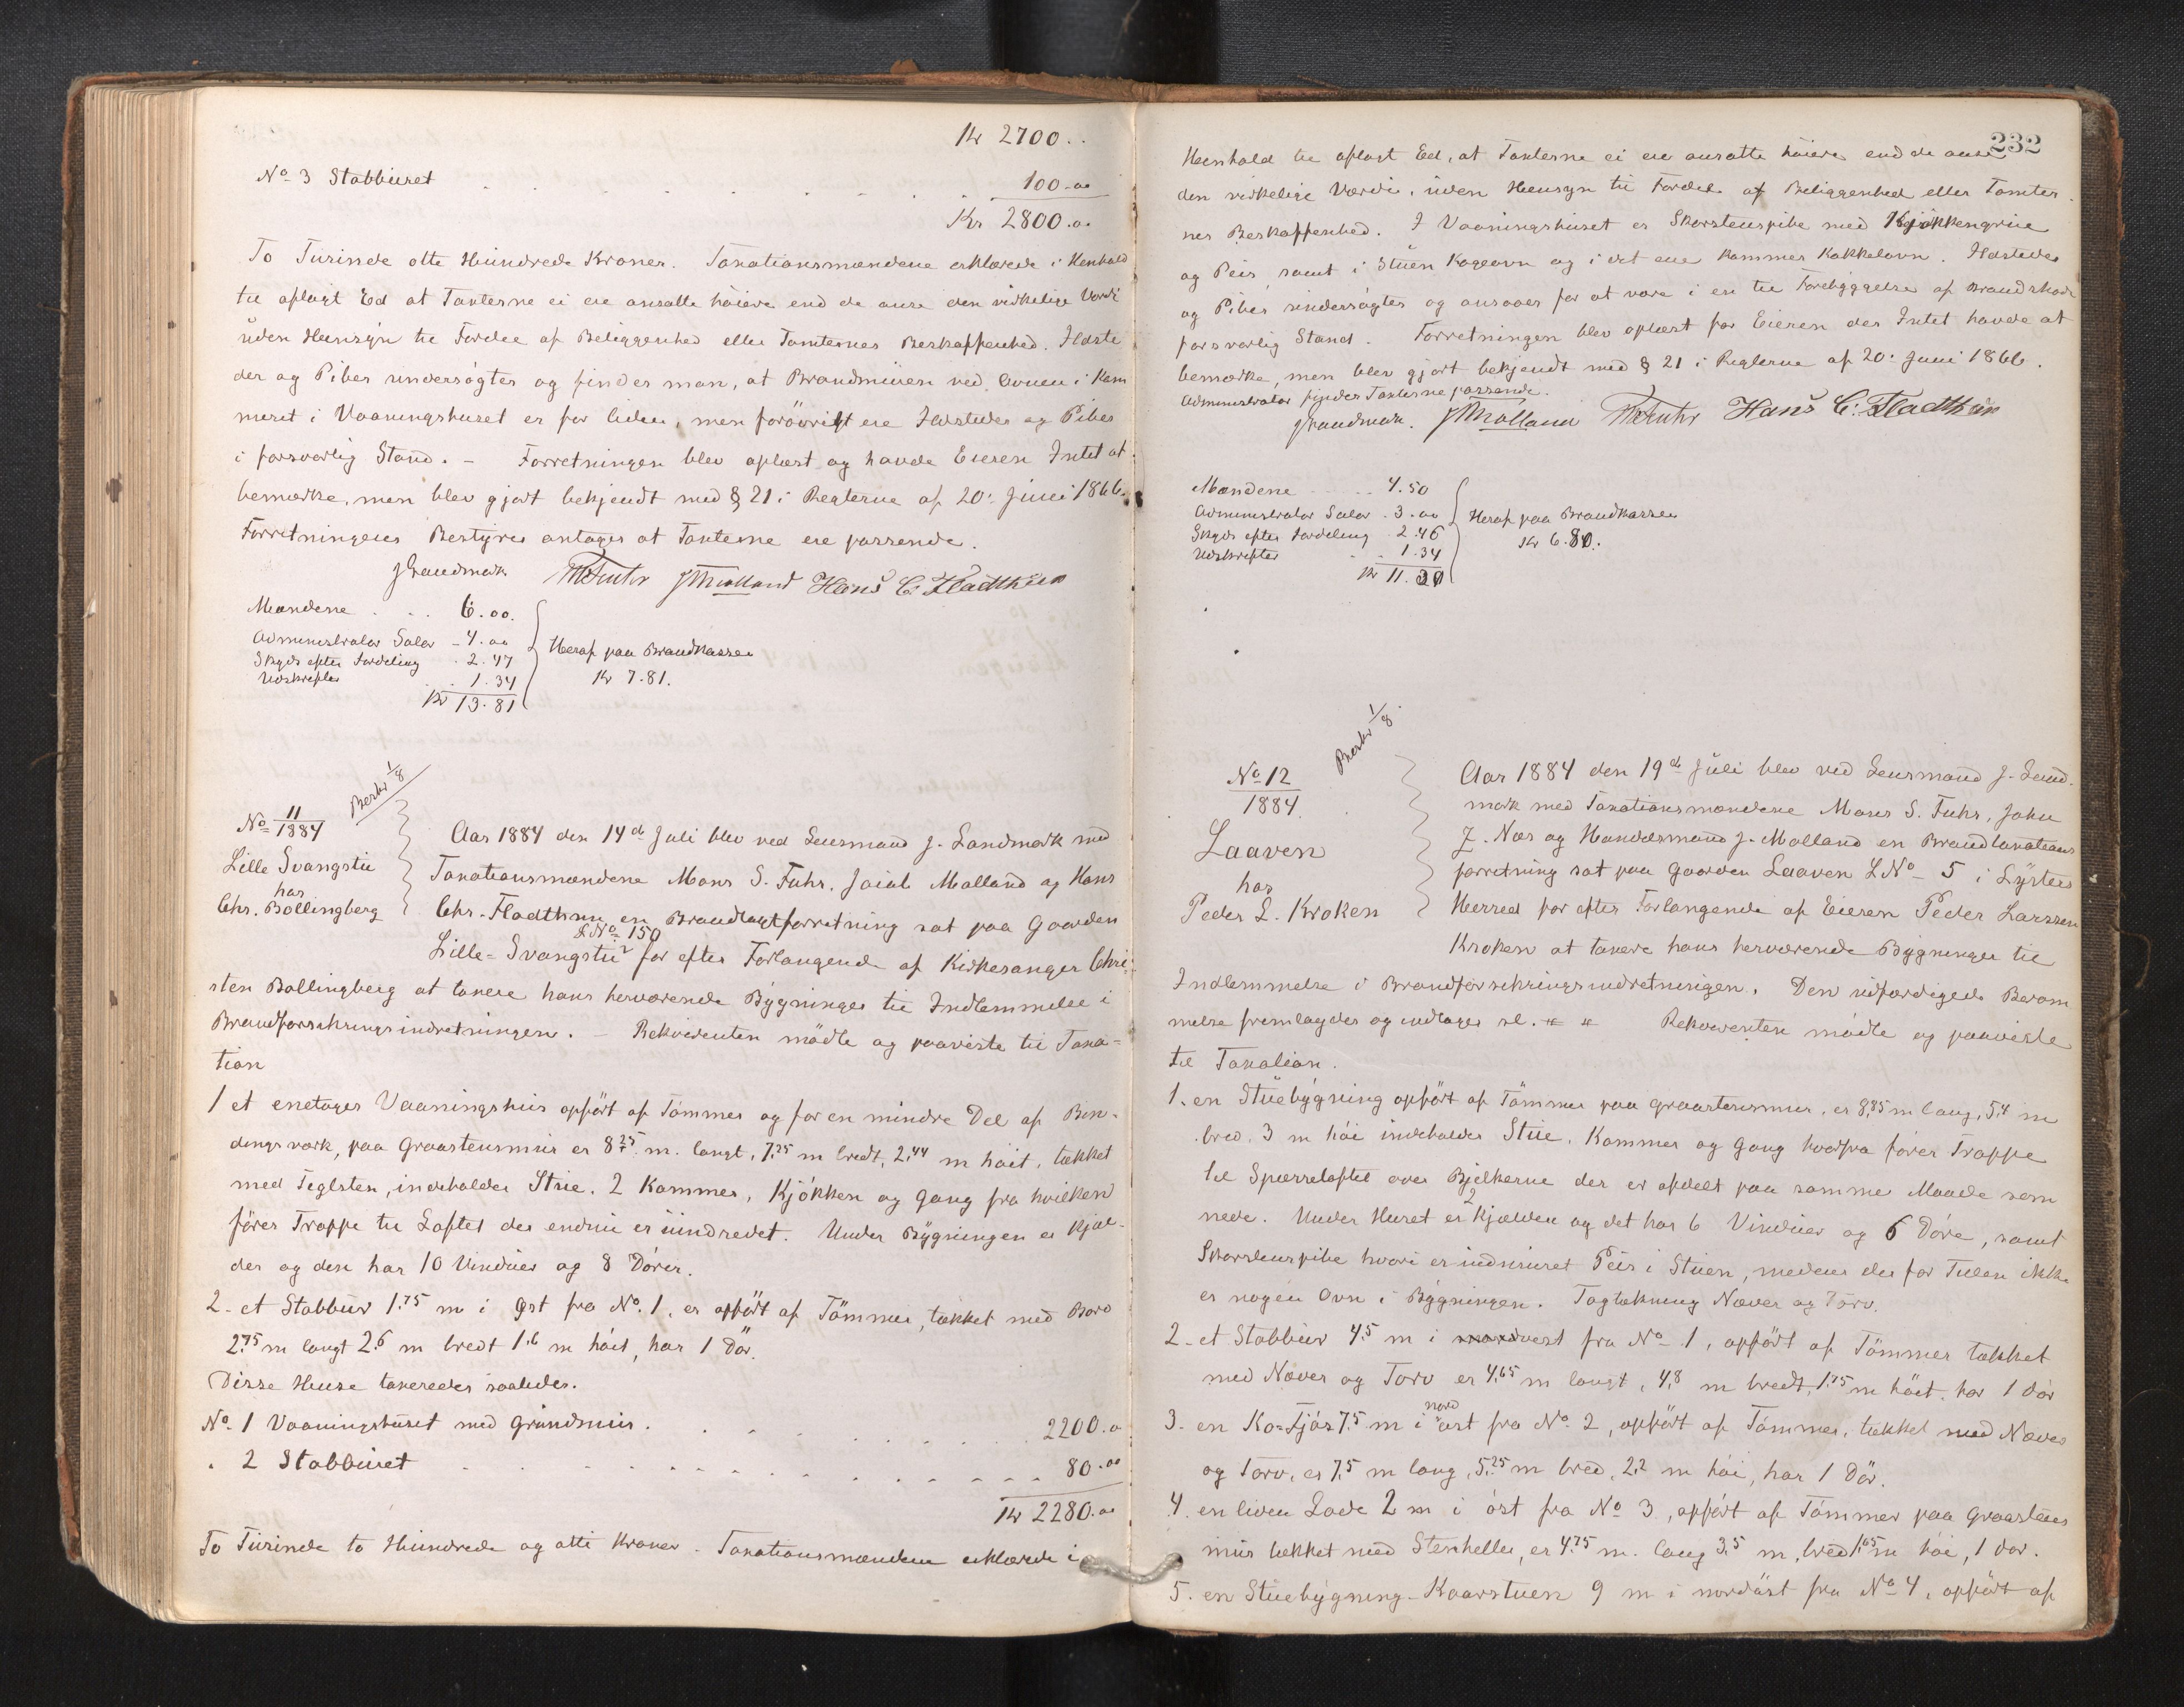 Kr 2700..
No 3 Stabburet . . . . . . 100.00
Kr 2800.00
To Tusinde otte Hundrede Kroner. Taxationsmændene erklærede i Henhold
til aflagt Ed at Taxterne ei ere ansatte høiere end de anse den virkelige Værdi
uden Hensyn til Fordel af Beliggenhed eller Tomternes Beskaffenhed. Ildste
der og Piber undersøgtes og findes man, at Brandmuren ved Ovnen i Kam
meret i Vaaningshuset er for liden, men forøvrigt ere Ildsteder og Piber
i forsvarlig Stand. - Forretningen blev oplæst og havde Eieren Intet at
bemærke, men blev gjort bekjendt med § 21 i Reglerne af 20. Juni 1866.
Forretningens Bestyrer antager at Taxterne ere passende.
J Landmark M S Fuhr J Molland Hans C. Fladthun
Mændene . . . 6.00.
Administrator Salær - 4.00
Skyds efter Fordeling . 2.47
Udskrifter . . 1.34
Kr 13.81
Heraf paa Brandkassen
Kr 7.81.
Beskr 1/8
No 11/1884
Lille Svangstu
har
Chr. Bollingberg
Aar 1884 den 14de Juli blev ved Lensmand J. Landmark med
Taxationsmændene Mons S. Fuhr, Jaiab Molland og Hans
Chr. Fladthun en Brandtaxtforretning sat paa Gaarden
L No 150
Lille-Svangstu for efter Forlangende af Kirkesanger Chri-
sten Bollingberg at taxere hans herværende Bygninger til Indlemmelse i
Brandforsikringsindretningen. - Rekvirenten mødte og paaviste til Taxa-
tion
1 et enetages Vaaningshus opført af Tømmer og for en mindre Del af Bin-
dingsværk, paa Graastensmur er 8,25 m. langt, 7,25 m bredt, 2,44 m høit, tækket
med Teglsten, indeholder Stue, 2 Kammer, Kjøkken og Gang fra hvilken
fører Trappe til Loftet der endnu er uindredet. Under Bygningen er Kjæl-
der og den har 10 Vinduer og 8 Dører.
2- et Stabbur 1,75 m i øst fra No. 1, er opført af Tømmer, tækket med Bord
2,75 m langt 2,6 m bredt 1,6 m høit, har 1 Dør.
Disse Huse taxeredes saaledes.
No. 1 Vaaningshuset med Grundmur . . . . . . 2200.00
. 2 Stabburet . . . . . . 80.00
Kr 2280.00
To Tusinde to Hundrede og otti Kroner - Taxationsmændene erklærede i
232
Henhold til aflagt Ed, at Taxterne ei ere ansatte høiere end de anse
den virkelige Værdi, uden Hensyn til Fordele af Beliggenhed eller Tomter
nes Beskaffenhed. I Vaaningshuset er Skorstenspibe med Kjøkkengrue
og Peis, samt i Stuen Kogeovn og i det ene Kammer Kakkelovn. Ildsteder
og Piber undersøgtes og ansaaes for at være i en til Forebyggelse af Brandskade
forsvarlig Stand. Forretningen blev oplæst for Eieren der Intet havde at
bemærke, men blev gjort bekjendt med § 21 i Reglerne af 20. Juni 1866.
Administrator finder Taxterne passende.
J Landmark. J Molland M S Fuhr Hans C: Fladthun
Mændene . . . 4.50
Administrator Salær . 3.00
Skyds efter Fordeling 2.46
Udskrifter . . 1.34
Kr 11.30
Heraf paa Brandkassen
Kr 6.80.
Beskr 1/8
No 12
1884
Laaven
har
Peder L. Kroken
Aar 1884 den 19de Juli blev ved Lensmand J. Land-
mark med Taxationsmændene Mons S. Fuhr, John
J. Næs og Handelsmand J. Molland en Brandtaxations
forretning sat paa Gaarden Laaven L No - 5 i Lysters
Herred for efter Forlangende af Eieren Peder Larssen
Kroken at taxere hans herværende Bygninger til
Indlemmelse i Brandforsikringsindretningen. Den udfærdigede Beram
melse fremlagdes og indtages sl. " " Rekvirenten mødte og paaviste
til Taxation.
1. en Stuebygning opført af Tømmer paa Graastensmur, er 8,85 m lang, 5,4 m
bred, 3 m høi indeholder Stue, Kammer og Gang hvorfra fører Trappe
til Sperreloftet over Bjelkerne der er afdelt paa samme Maade som
nede. Under Huset er 2 Kjældere og det har 6 Vinduer og 6 Døre, samt
Skorstenspibe hvori er indmuret Peis i Stuen, medens der for Tiden ikke
er nogen Ovn i Bygningen. Tagtækning Næver og Torv.
2- et Stabbur 4,5 m i nordvest fra No - 1, opført af Tømmer tækket
med Næver og Torv er 4,65 m langt, 4,8 m bredt, 1,75 m høit, har 1 Dør
3- en Ko-Fjøs 7,5 m i nord øst fra No. 2, opført af Tømmer, tækket med Næver
og Torv, er 7,5 m lang, 5,25 m bred, 2,2 m høi, har 1 Dør.
4. en liden Lade 2 m i øst fra No 3, opført af Tømmer paa Graastens
mur tækket med Stenheller, er 4,75 m. lang 3,5 m, bred 1,65 m høi, 1 Dør.
5. en Stuebygning - Kaarstuen 9 m i nordøst fra No 4, opført af